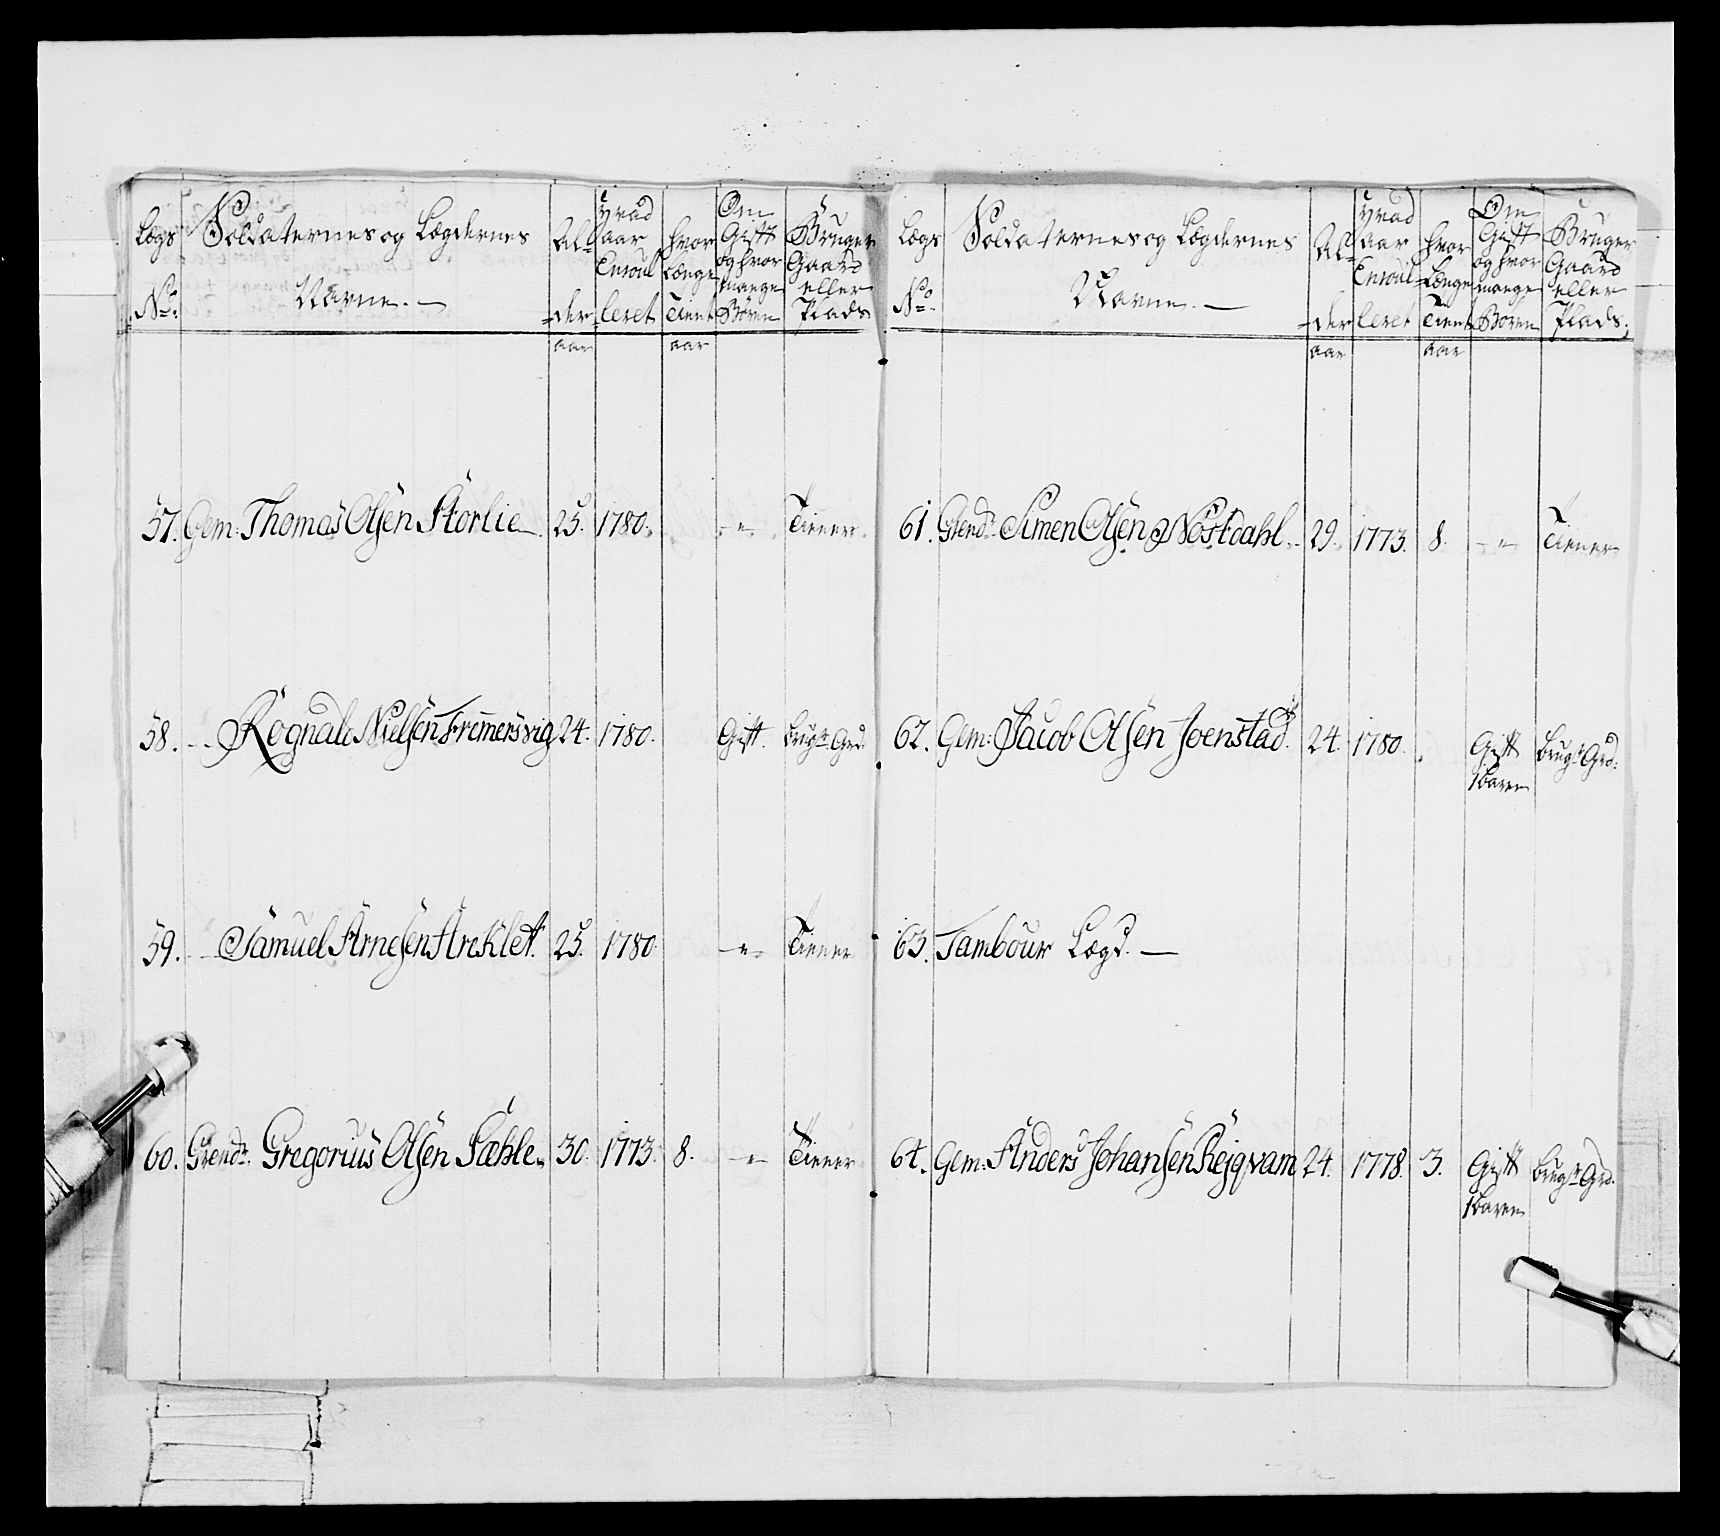 Lægs
No.
Soldaternes og Lægdernes
Navne. —
Al-
der
aar
Hvad
aar
Enroul
leret
hvor
Længe
Tient
aar
Om
Gift
og hvor
mange
Börn
Bruger
Gaard
eller
Plads
57. Gem: Thomas Olsen Störlie 25. 1780. -"- Tiener
58. - - Rognald Nielsen Fremersvig 24. 1780. Gift. brugr Grd.
59. - - Samuel Arnesen Areklett. 25. 1780. -"- Tiener
60. Grendr. Gregorius Olsen Sæhle. 30. 1773. 8. -"- Tiener
Lægs
No.
Soldaternes og Lægdernes
Navne. —
Al-
der
aar
Hvad
aar
Enroul
leret
hvor
Længe
Tient
aar
Om
Gift
og hvor
mange
Börn
Bruger
Gaard
eller
Plads.
61. Grendr. Simen Olsen Nöstdahl. 29. 1773. 8. -"- Tiener
62. Gem: Jacob Olsen Joenstad. 24. 1780. Gift brugr Grd.
1 barn
63. Tambour Lægd. —
64. Gem: Anders Johansen Rejqvam 24. 1778. 3. Gift brugr Grd.
1 barn